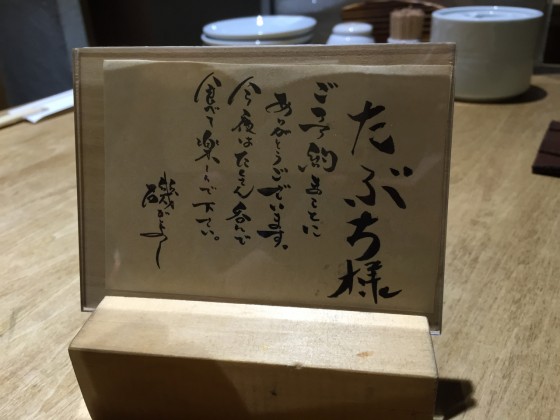 たぶち様
ご予約まことに
ありがとうございます。
今夜はたくさん呑んで
食べて楽しんで下さい。
磯がよめし